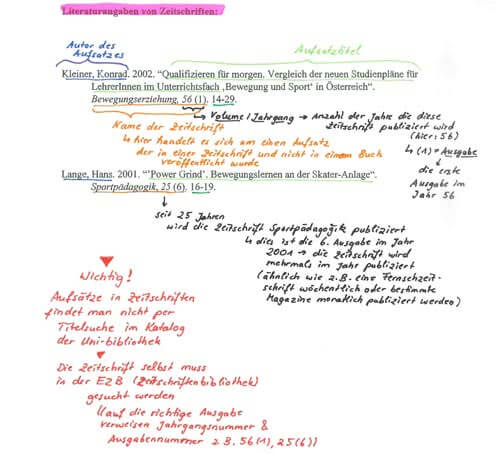 Literaturangaben von Zeitschriften:
Autor des
Aufsatzes
Aufsatztitel
Kleiner, Konrad. 2002. “Qualifizieren für morgen. Vergleich der neuen Studienpläne für
LehrerInnen im Unterrichtsfach ‚Bewegung und Sport‘ in Österreich“.
Bewegungserziehung, 56 (1). 14-29.
↳ Volume / Jahrgang → Anzahl der Jahre die diese
Zeitschrift publiziert wird
(hier: 56)
↳ (1) = Ausgabe
↓
die erste
Ausgabe im
Jahr 56
Name der Zeitschrift
↳ hier handelt es sich um einen Aufsatz
der in einer Zeitschrift und nicht in einem Buch
veröffentlicht wurde
Lange, Hans. 2001. “’Power Grind’. Bewegungslernen an der Skater-Anlage“.
Sportpädagogik, 25 (6). 16-19.
↓
seit 25 Jahren
wird die Zeitschrift Sportpädagogik publiziert
↳ dies ist die 6. Ausgabe im Jahr
2001 → die Zeitschrift wird
mehrmals im Jahr publiziert
(ähnlich wie z.B. eine Fernsehzeit-
schrift wöchentlich oder bestimmte
Magazine monatlich publiziert werden)
Wichtig!
Aufsätze in Zeitschriften
findet man nicht per
Titelsuche im Katalog
der Uni-bibliothek
Die Zeitschrift selbst muss
in der EZB (Zeitschriftenbibliothek)
gesucht werden
(auf die richtige Ausgabe
verweisen Jahrgangsnummer &
Ausgabennummer z.B. 56(1), 25(6))